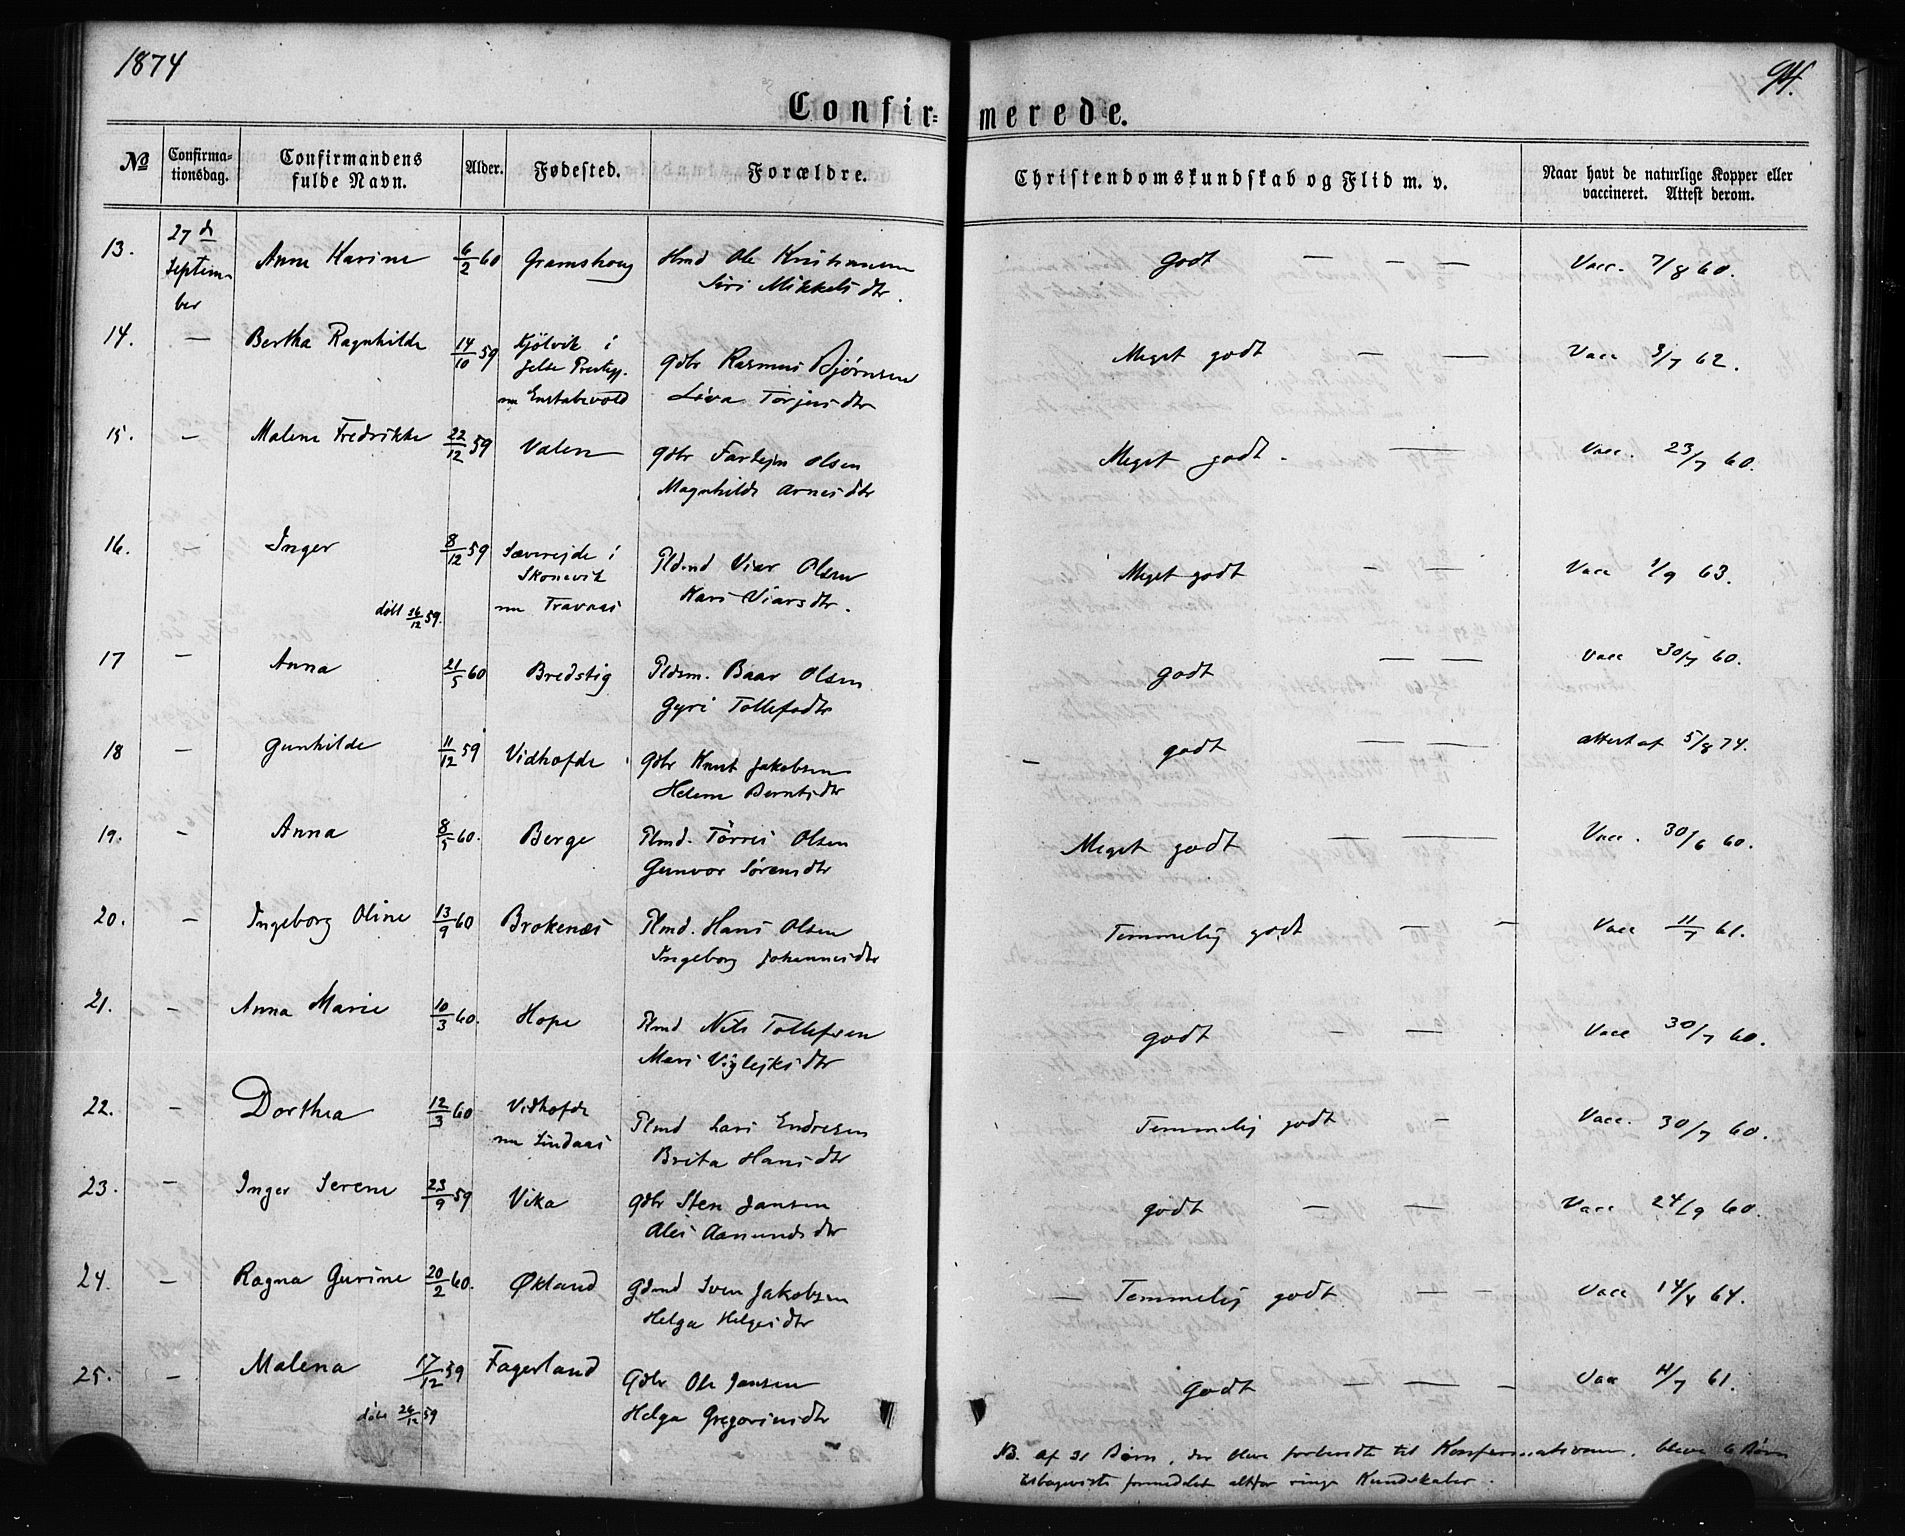 1874
94.
Confir=
merede.
No
Confirma-
tionsdag.
Confirmandens
fulde Navn.
Alder.
Fødested.
Forældre.
Christendomskundskab og Flid m. v.
Naar havt de naturlige Kopper eller
vaccineret. Attest derom.
13. 27 d Anne Karine 6/2 60 Gramshoug Hmd Ole Kristiansen godt — — — Vacc. 7/8 60.
Septem-
ber
Siri Mikkelsdtr.
14. — Bertha Ragnhilde 14/10 59 Kjölvik i gdbr Rasmus Bjørnsen Meget godt — — Vacc 3/7 62.
Jelse Prestgj.
nu Enstabøvold
Liva Torjusdtr
15. — Malene Fredrikke 22/12 59 Valen gdbr Fartejn Olsen Meget godt. — Vacc. 23/7 60.
Magnhilde Arnesdtr
16. — Inger 8/12 59 Sæverejde i Pldmd Viar Olsen Meget godt — — Vacc 1/9 63.
Skonevik
nu Travaas
Kari Viarsdtr.
døbt 26/12 59.
17 — Anna 21/5 60 Bredstig Pldsm. Baar Olsen godt — — Vacc 30/7 60.
Gyri Tollefsdtr
18 — Gunhilde 11/12 59 Vidhofde gdbr Knut Jakobsen — godt — — attest af 5/8 74.
Helene Berntsdtr
19. — Anna 8/5 60. Berge Plmd. Törris Olsen Meget godt — — Vacc. 30/6 60.
Gunvor Sörensdtr
20. — Ingeborg Oline 13/9 60 Brokenæs Plmd. Hans Olsen Temmelig godt — — Vacc 11/7 61.
Ingeborg Johannesdtr
21. — Anna Marie 10/3 60. Hope Plmd Nils Tollefsen godt — — Vacc 30/7 60.
Mari Viglejksdtr
22. — Dorthea 12/3 60 Vidhofde Plmd Lars Endresen Temmelig godt — Vacc. 30/7 60.
nu Lindaas
Brita Hansdtr
23. — Inger Serene 23/9 59 Vika gdbr Sten Jansen godt — — Vacc 24/9 60.
Ales Aamundsdtr
24. — Ragna Gurine 20/2 60. Økland gdmd Sven Jakobsen — Temmelig godt — — Vacc 14/4 64.
Helga Helgesdtr
25. — Malena 17/12 59 Fagerland Gdbr Ole Jansen godt — — — Vacc 11/7 61.
døbt 26/12 59
Helga Gregoriusdtr
NB. Af 31 Børn, der blev forberedte til Konfirmationen, bleve 6 Børn
tilbageviste formedelst altfor ringe Kundskaber.